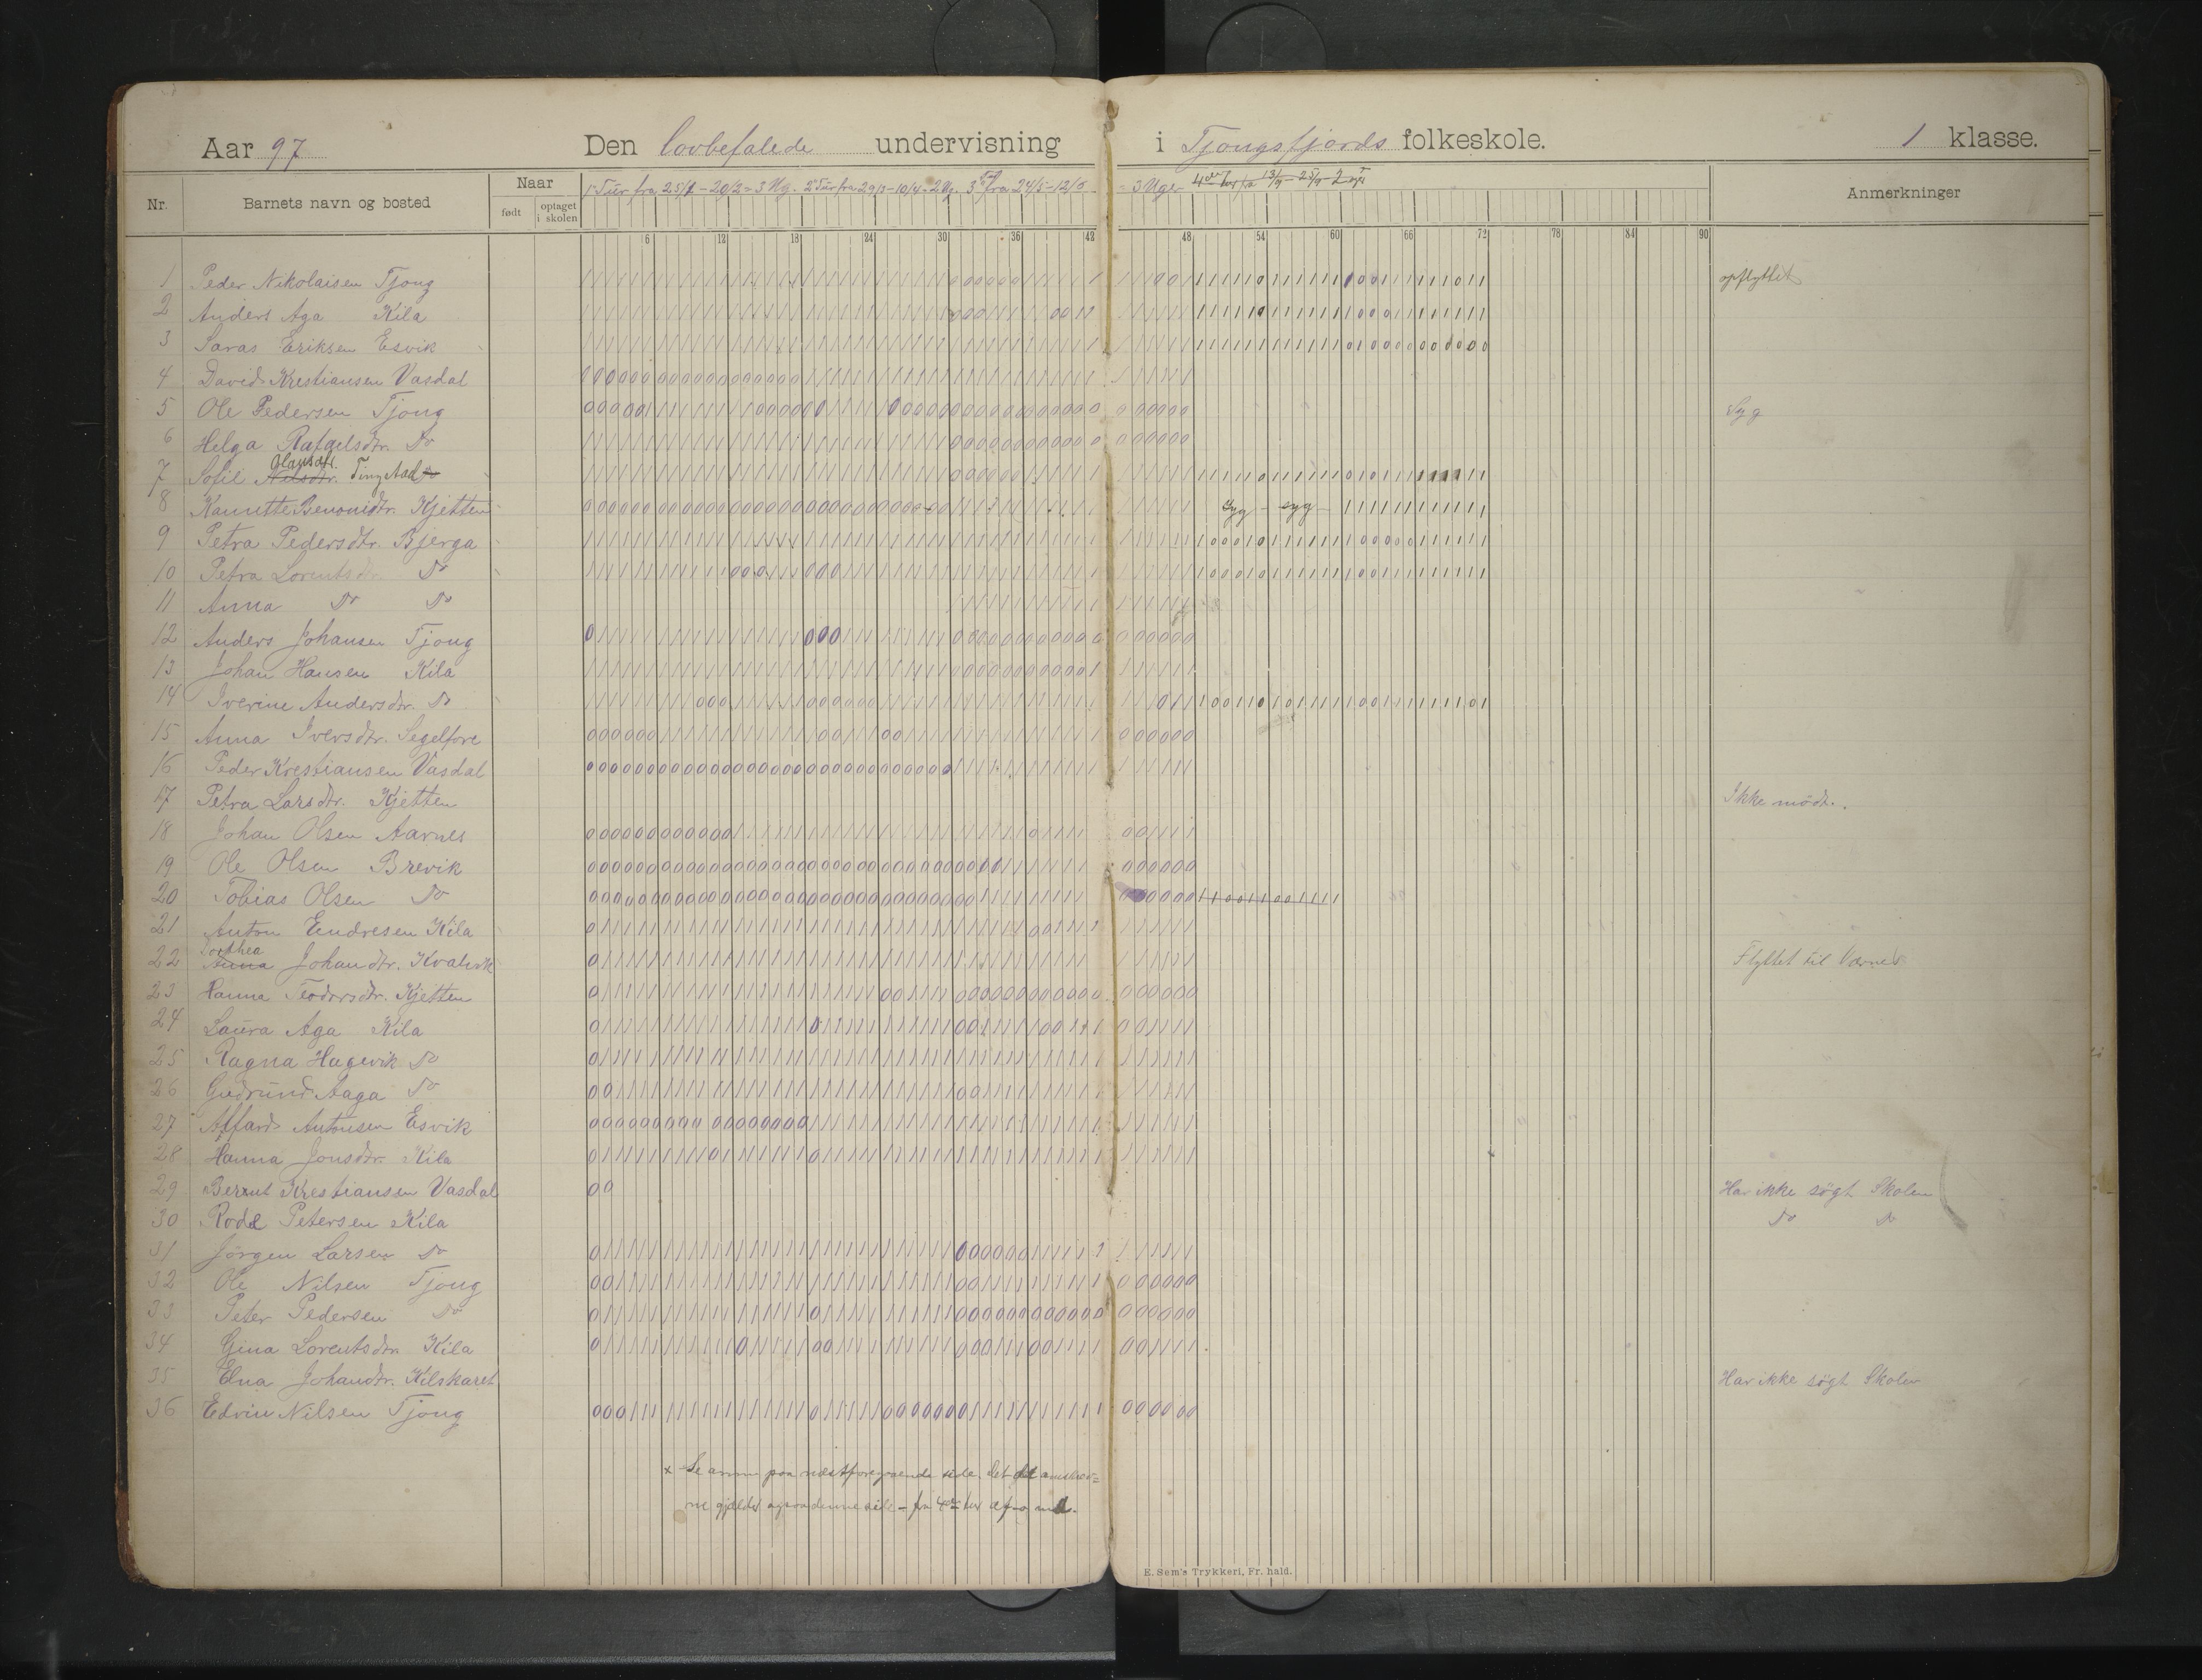 Aar 97 Den lovbefalede undervisning i Tjongsfjords folkeskole. 1 klasse.
Nr. Barnets navn og bosted Naar født optaget i skolen 1ste Tur fra 25/1 - 20/2 = 3 Ug. 2den Tur fra 29/3 - 10/4 = 2 Ug. 3die Tur fra 24/5 - 12/6 = 3 Uger 4de Tur fra 13/9 - 25/9 - 2 uger Anmerkninger
6 12 18 24 30 36 42 48 54 60 66 72 78 84 90
1 Peder Nikolaisen Tjong opflyttet
2 Anders Aga Kila
3 Saras Eriksen Esvik
4 David Krestiansen Vasdal
5 Ole Pedersen Tjong Syg
6 Helga Rafaelsdtr. Do
7 Sofil Nilsdtr. Olausdtr. Tingstad Do
8 Kanutte Benonisdtr. Kjetten syg - syg -
9 Petra Pedersdtr. Bjerga
10 Petra Lorentsdtr. Do
11 Anna Do Do
12 Anders Johansen Tjong
13 Johan Hansen Kila
14 Iverine Andersdtr. Do
15 Anna Iversdtr. Segelfore
16 Peder Krestiansen Vasdal
17 Petra Larsdtr. Kjetten Ikke mødt.
18 Johan Olsen Aarnes
19 Ole Olsen Brevik
20 Tobias Olsen Do
21 Anton Endresen Kila
22 Anna Dorthea Johandtr. Kvalvik Flyttet til Værnes
23 Hanna Teodorsdtr. Kjetten
24 Laura Aga Kila
25 Ragna Hagevik Do
26 Gudrund Aaga Do
27 Alfard Antonsen Esvik
28 Hanna Jonsdtr. Kila
29 Bernt Krestiansen Vasdal Har ikke søgt Skolen
30 Rode Petersen Kila Do Do
31 Jørgen Larsen Do
32 Ole Nilsen Tjong
33 Peter Pedersen Do
34 Gina Lorentsdtr. Kila
35 Elna Johandtr. Kilskaret Har ikke søgt Skolen
36 Edvin Nilsen Tjong
x Se anm paa næstforegaaende side. Det
gjælder ogsaa denne side - fra 4de tur af
E. Sem's Trykkeri, Fr. hald.